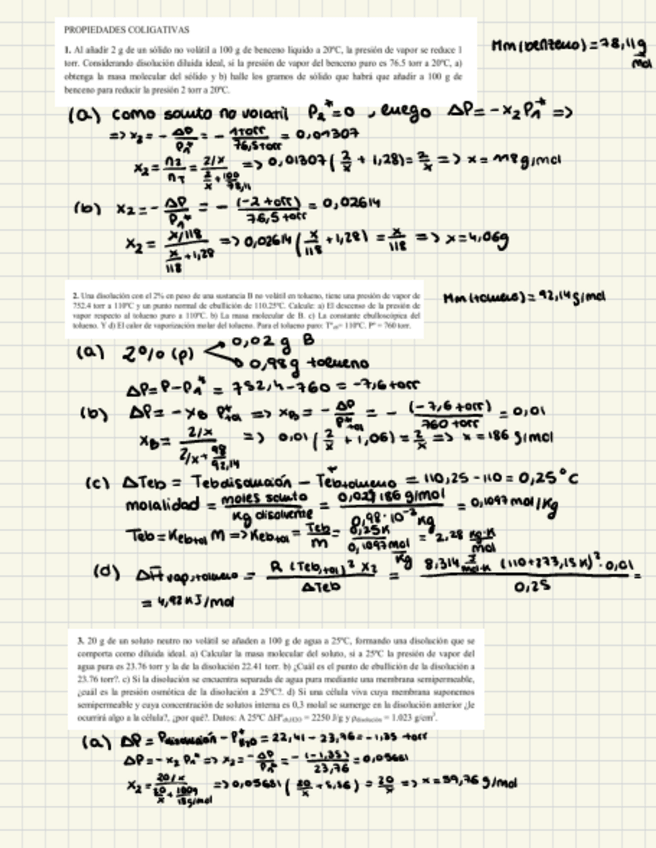 PROPIEDADES COLIGATIVAS
1. Al añadir 2 g de un sólido no volátil a 100 g de benceno líquido a 20ºC, la presión de vapor se reduce 1
torr. Considerando disolución diluida ideal, si la presión de vapor del benceno puro es 76.5 torr a 20ºC, a)
obtenga la masa molecular del sólido y b) halle los gramos de sólido que habrá que añadir a 100 g de
benceno para reducir la presión 2 torr a 20ºC.
Mm (benceno) = 78,11 g/mol
(a) Como soluto no volatil P₂* = 0, luego ΔP = -x₂P₁* =>
=> x₂ = - ΔP/P₁* = - 1 torr/76,5 torr = 0,01307
x₂ = n₂/nT = (2/x)/(2/x + 100/78,11) => 0,01307 (2/x + 1,28) = 2/x => x = 118 g/mol
(b) x₂ = - ΔP/P₁* = - (-2 torr)/76,5 torr = 0,02614
x₂ = (x/118)/(x/118 + 1,28) => 0,02614 (x/118 + 1,28) = x/118 => x = 4,06g
2. Una disolución con el 2% en peso de una sustancia B no volátil en tolueno, tiene una presión de vapor de
752.4 torr a 110ºC y un punto normal de ebullición de 110.25ºC. Calcule: a) El descenso de la presión de
vapor respecto al tolueno puro a 110ºC. b) La masa molecular de B. c) La constante ebulloscópica del
tolueno. Y d) El calor de vaporización molar del tolueno. Para el tolueno puro: Tºeb= 110ºC. Pº = 760 torr.
Mm (tolueno) = 92,14 g/mol
(a) 2% (p) 0,02 g B
0,98 g tolueno
ΔP = P - P₁* = 752,4 - 760 = -7,6 torr
(b) ΔP = - xB P*tol => xB = - ΔP/P*tol = - (-7,6 torr)/760 torr = 0,01
xB = (2/x)/(2/x + 98/92,14) => 0,01 (2/x + 1,06) = 2/x => x = 186 g/mol
(c) ΔTeb = Teb disolución - Teb tolueno = 110,25 - 110 = 0,25°C
molalidad = moles soluto/Kg disolvente = 0,02/186 g/mol/0,98·10⁻³ Kg = 0,1097 mol/Kg
Teb = Keb tol m => Keb tol = Teb/m = 0,25K/0,1097 mol/Kg = 2,28 Kg·K/mol
(d) ΔH vap, tolueno = R (Teb, tol)² x₂/ΔTeb = 8,314 J/mol·K (110 + 273,15 K)² · 0,01/0,25 =
= 4,92 KJ/mol
3. 20 g de un soluto neutro no volátil se añaden a 100 g de agua a 25ºC, formando una disolución que se
comporta como diluida ideal. a) Calcular la masa molecular del soluto, si a 25ºC la presión de vapor del
agua pura es 23.76 torr y la de la disolución 22.41 torr. b) ¿Cuál es el punto de ebullición de la disolución a
23.76 torr?. c) Si la disolución se encuentra separada de agua pura mediante una membrana semipermeable,
¿cuál es la presión osmótica de la disolución a 25ºC?. d) Si una célula viva cuya membrana suponemos
semipermeable y cuya concentración de solutos interna es 0,3 molal se sumerge en la disolución anterior ¿le
ocurrirá algo a la célula?, ¿por qué?. Datos: A 25ºC ΔHºv(H2O) = 2250 J/g y ρdisolución = 1.023 g/cm³.
(a) ΔP = Pdisolución - P*H₂O = 22,41 - 23,76 = -1,35 torr
ΔP = - x₂ P₁* => x₂ = - ΔP/P₁* = - (-1,35)/23,76 = 0,05681
x₂ = (20/x)/(20/x + 100g/18g/mol) => 0,05681 (20/x + 5,56) = 20/x => x = 59,76 g/mol